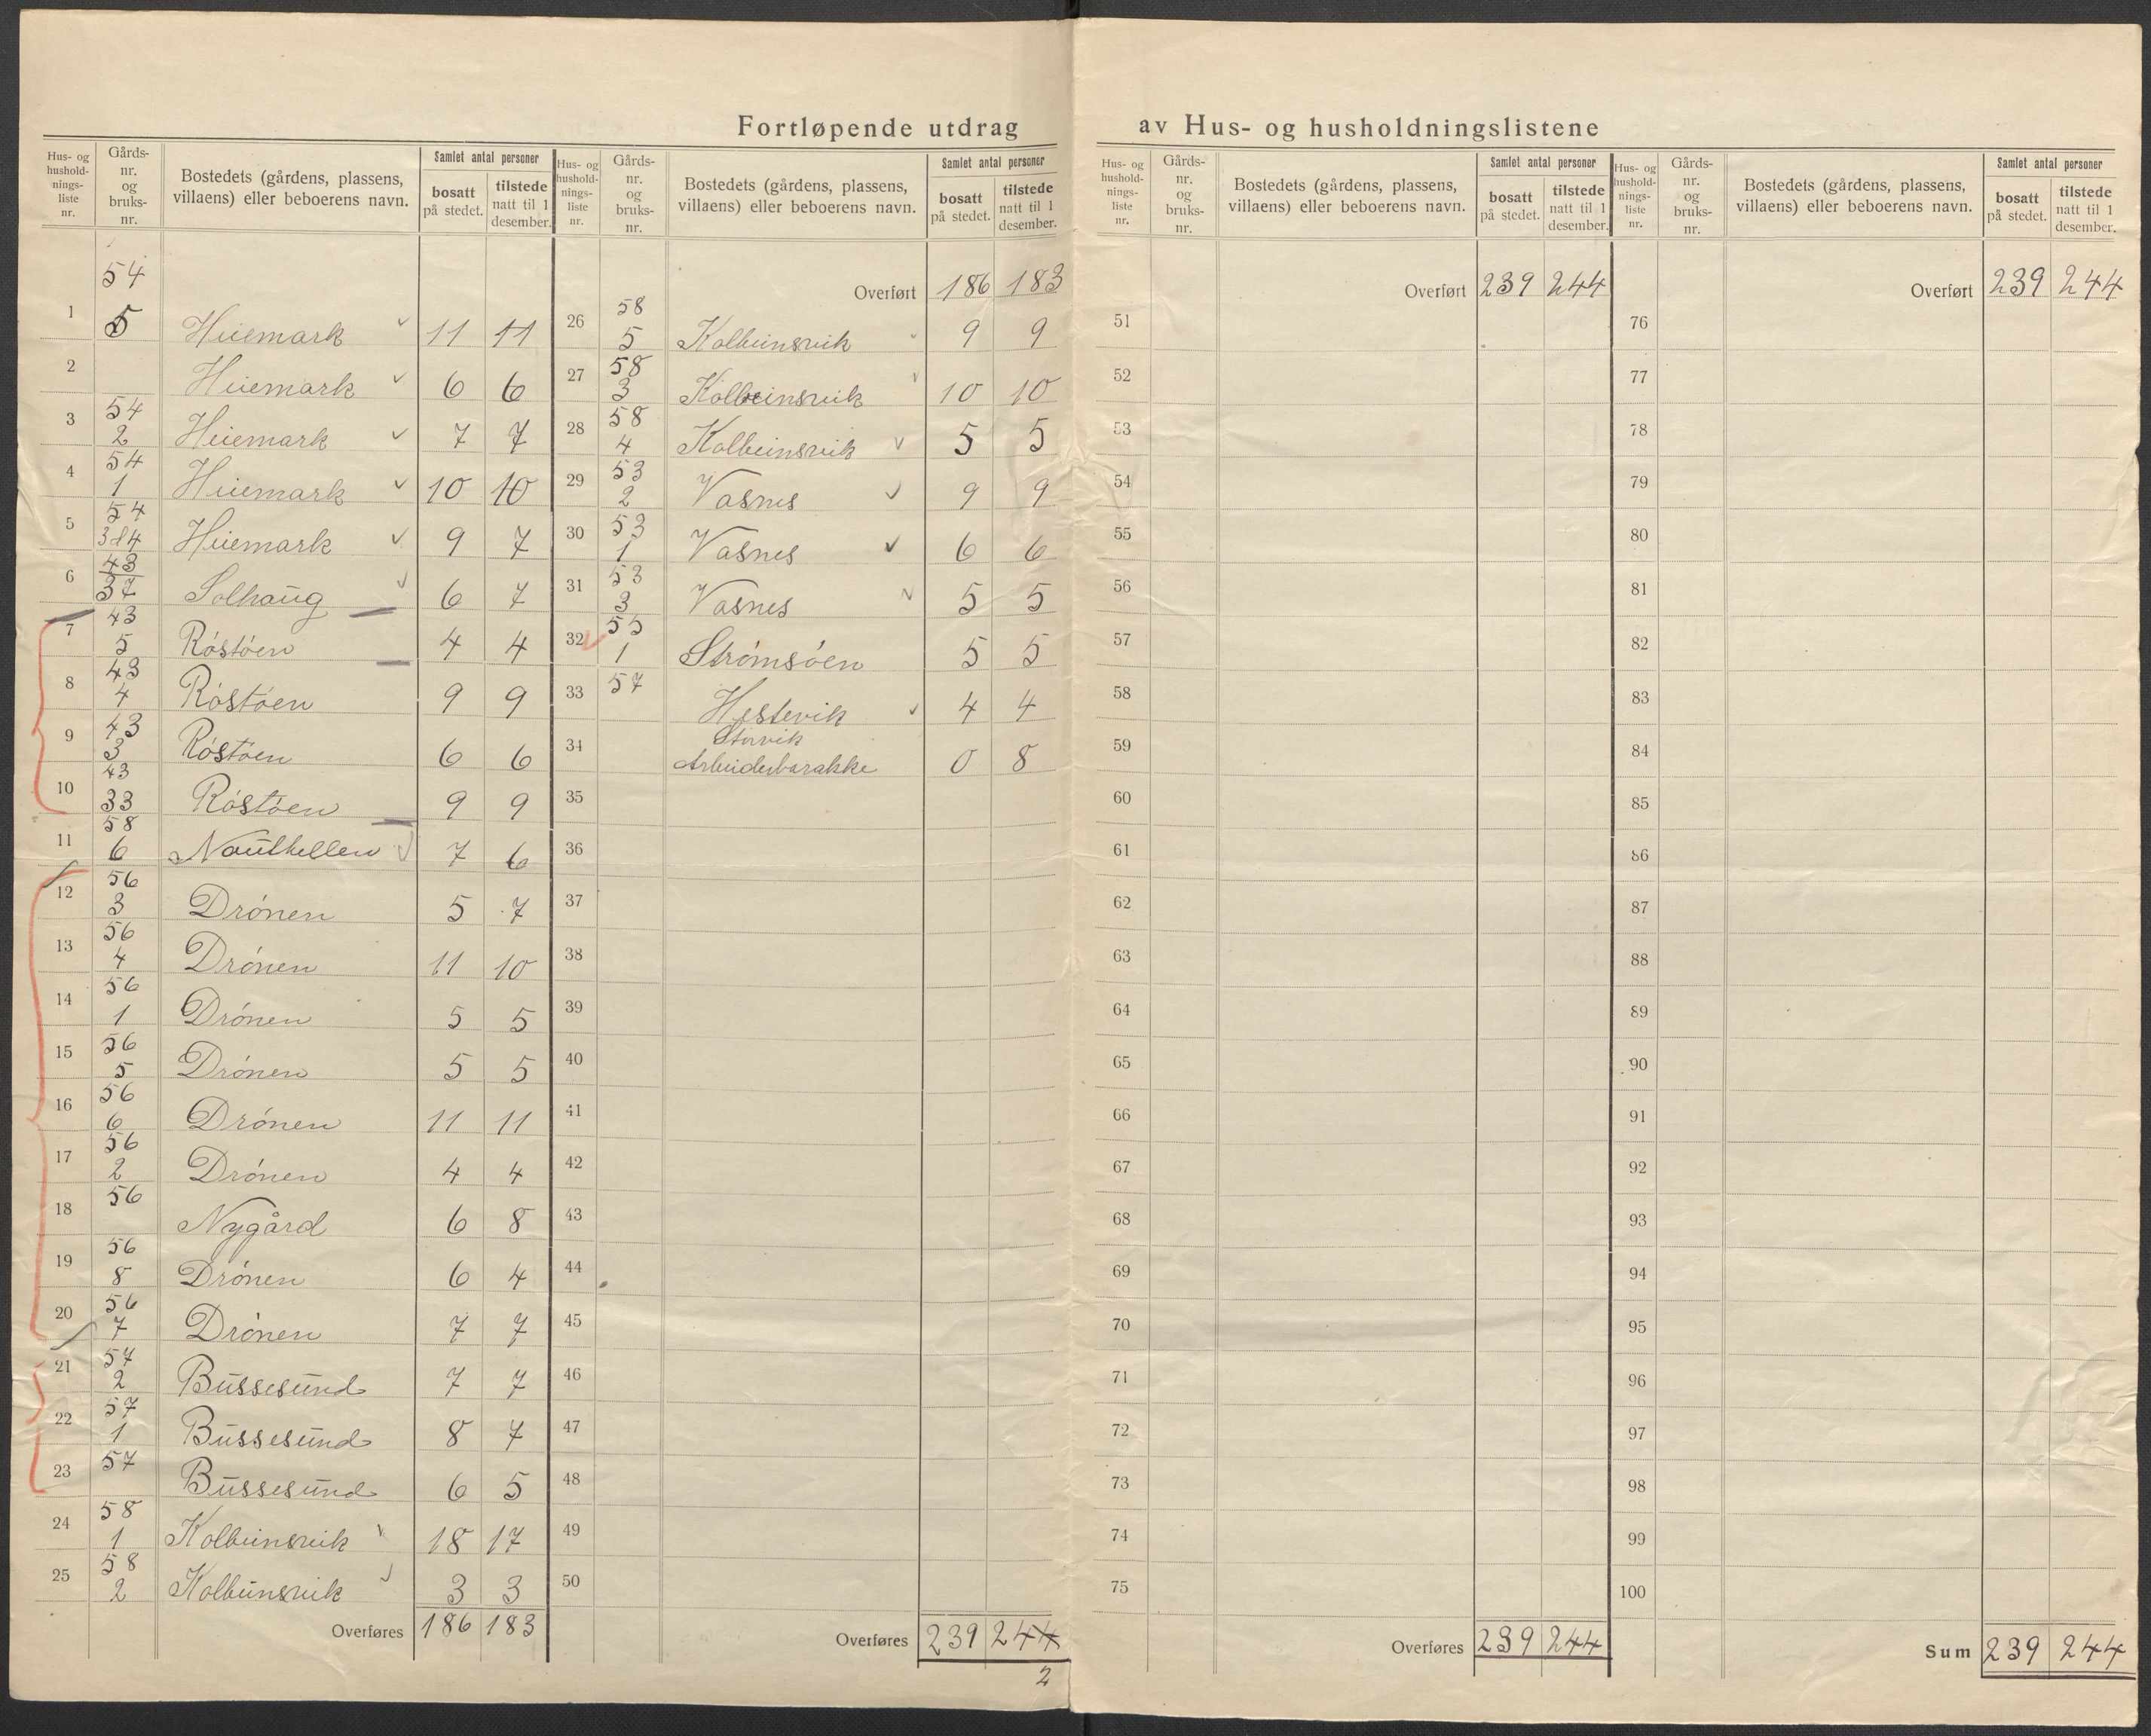 Fortløpende utdrag av Hus- og husholdningslistene
Hus- og hushold- nings- liste nr. | Gårds- nr. og bruks- nr. | Bostedets (gårdens, plassens, villaens) eller beboerens navn. | Samlet antal personer | bosatt på stedet. | tilstede natt til 1 desember.
1 54 5 Heiemark 11 11
2 Heiemark 6 6
3 54 2 Heiemark 7 7
4 54 1 Heiemark 10 10
5 54 3&4 Heiemark 9 7
6 43 37 Solhaug 6 7
7 43 5 Röstöen 4 4
8 43 4 Röstöen 9 9
9 43 3 Röstöen 6 6
10 43 33 Röstöen 9 9
11 58 6 Nauthellen 7 6
12 56 3 Drónen 5 7
13 56 4 Drónen 11 10
14 56 1 Drónen 5 5
15 56 5 Drónen 5 5
16 56 6 Drónen 11 11
17 56 2 Drónen 4 4
18 56 Nygård 6 8
19 56 8 Drónen 6 4
20 56 7 Drónen 7 7
21 57 2 Bussesund 7 7
22 57 1 Bussesund 8 7
23 57 Bussesund 6 5
24 58 1 Kolbeinsvik 18 17
25 58 2 Kolbeinsvik 3 3
Overføres 186 183
Hus- og hushold- nings- liste nr. | Gårds- nr. og bruks- nr. | Bostedets (gårdens, plassens, villaens) eller beboerens navn. | Samlet antal personer | bosatt på stedet. | tilstede natt til 1 desember.
Overført 186 183
26 58 5 Kolbeinsvik 9 9
27 58 3 Kolbeinsvik 10 10
28 58 4 Kolbeinsvik 5 5
29 53 2 Vasnes 9 9
30 53 1 Vasnes 6 6
31 53 3 Vasnes 5 5
32 55 1 Strómsóen 5 5
33 57 Hestevik 4 4
34 Storvik Arbeiderbarakke 0 8
35
36
37
38
39
40
41
42
43
44
45
46
47
48
49
50
Overføres 239 244
2
Hus- og hushold- nings- liste nr. | Gårds- nr. og bruks- nr. | Bostedets (gårdens, plassens, villaens) eller beboerens navn. | Samlet antal personer | bosatt på stedet. | tilstede natt til 1 desember.
Overført 239 244
51
52
53
54
55
56
57
58
59
60
61
62
63
64
65
66
67
68
69
70
71
72
73
74
75
Overføres 239 244
Hus- og hushold- nings- liste nr. | Gårds- nr. og bruks- nr. | Bostedets (gårdens, plassens, villaens) eller beboerens navn. | Samlet antal personer | bosatt på stedet. | tilstede natt til 1 desember.
Overført 239 244
76
77
78
79
80
81
82
83
84
85
86
87
88
89
90
91
92
93
94
95
96
97
98
99
100
Sum 239 244